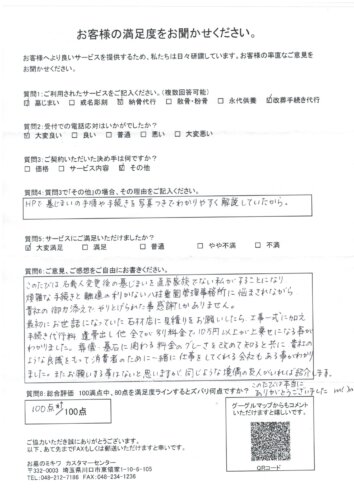 お客様の満足度をお聞かせください。
お客様へより良いサービスを提供するため、私たちは日々研鑽しています。お客様の率直なご意見を
お聞かせください。
質問1：ご利用されたサービスをご記入ください。（複数回答可能）
☑ 墓じまい □ 戒名彫刻 ☑ 納骨代行 □ 散骨・粉骨 □ 永代供養 ☑改葬手続き代行
質問2：受付での電話応対はいかがでしたか？
☑ 大変良い □ 良い □ 普通 □ 悪い □ 大変悪い
質問3：ご契約いただいた決め手は何ですか？
□ 価格 □ サービス内容 ☑ その他
質問4：質問3で「その他」の場合、その理由をご記入ください。
HPで墓じまいの手順や手続きを写真つきでわかりやすく解説していたから。
質問5：サービスにご満足いただけましたか？
☑ 大変満足 □ 満足 □ 普通 □ やや不満 □ 不満
質問6：ご意見、ご感想をご自由にお書きください。
このたびは名義人変更後の墓じまいを直系家族でない私がすることになり
煩雑な手続きと融通の利かない八柱霊園管理事務所に悩まされながら
貴社の御力添えでやりとげられた事感謝しかありません。
最初にお世話になっていた石材店に見積りをお願いしたら、工事一式に加え
手続き代行料 遺骨出し他 全てが割り料金で10万円以上が上乗せになる事が
わかりました。葬儀・墓石に関わる料金のグレーさを改めて知ると共に 貴社の
ような良識をもって消費者のために一緒に仕事をしてくれる会社もある事がわかり
ました。またお願いする事はないと思いますが 同じような境遇の友人がいれば紹介します。
このたびは本当に
ありがとうございました
質問8：総合評価 100満点中、80点を満足度ラインするとズバリ何点ですか？
100点 /100点
グーグルマップからもコメント
いただけますと嬉しいです。
QRコード
ご協力いただき誠にありがとうございます。
以下、あて先までFAXもしくは郵送いただけますと幸いです。
お墓のミキワ カスタマーセンター
〒332-0003 埼玉県川口市東領家1-10-6-105
TEL:048-212-7186 FAX:048-234-1236